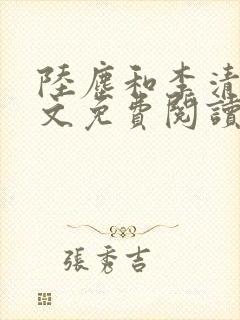 陸塵和李清
文免費閱讀
張秀吉